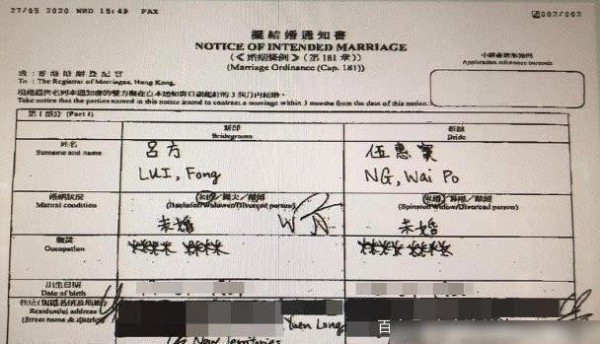 27/05 2020 WED 15:49 FAX
002/002
擬結婚通知書
NOTICE OF INTENDED MARRIAGE
(《婚姻條例》(第181章))
(Marriage Ordinance (Cap. 181))
Application reference barcode
致:香港婚姻登記官
To : The Registrar of Marriages, Hong Kong.
Take notice that the parties named in this notice intend to contract a marriage within 3 months from the date of this notice.
第1部分 (Part I)
新郎
Bridegroom
新娘
Bride
姓名
Surname and name
呂方
LUI, Fong
伍惠寶
NG, Wai Po
婚姻狀況
Marital condition
(Bachelor/Widower/Divorced person)
(Spinster/Widow/Divorced person)
未婚
未婚
職業
Occupation
出生日期
Date of birth
Residential address
(Street name & district)
Yuen Long
New Territories
百